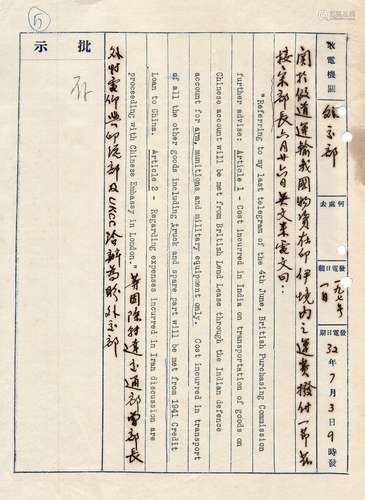 收電機關
外交部
何處去
發電日期
一九七号
一日
發電日期
32年7月3日9時發
關於假道運輸我國物資在印伊境内之運費撥付一節茲
接宋部長六月廿六日英文来電文曰:
"Referring to my last telegram of the 4th June, British Purchasing Commission
further advise: Article 1 - Cost incurred in India on transportation of goods on
Chinese account will be met from British Lend Lease through the Indian defence
account for arm, munitions and military equipment only. Cost incurred in transport
of all the other goods including truck and spare part will be met from 1941 Credit
Loan to China. Article 2 - Regarding expenses incurred in Iran discussion are
proceeding with Chinese Embassy in London."
等因除转達交通部曾部長
外特電仰與印總部及UKCC洽辦為盼外交部
批示
存
5